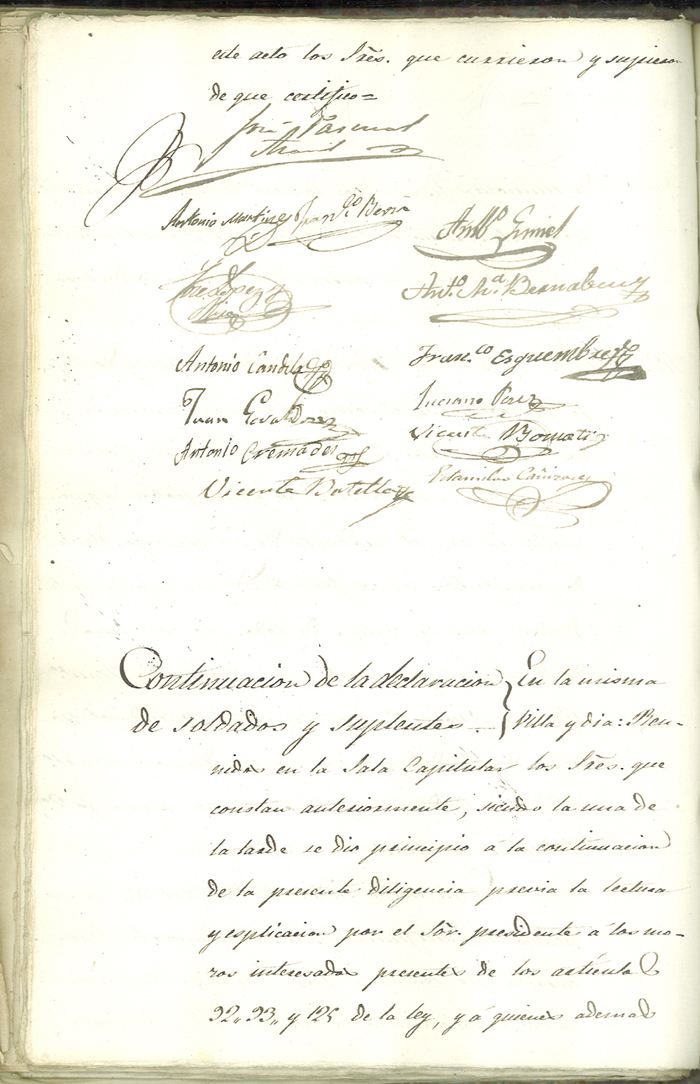 este acto los Sres. que currieron y supieron
de que certifico=
José Pascual
Antonio Martinez Franco. Berna
Antto.
José Lopez
Anto. Ma. Bernabeu
Antonio Candela
Fran.co Esquembre
Juan
Luciano Perez
Antonio Cremades
Vicente Bomati
Vicente Botella
Estanislao Cañizares
Continuacion de la declaracion } En la misma
de soldados y suplentes } Villa y dia: Reu-
nidos en la Sala Capitular los Sres. que
constan anteriormente, siendo la una de
la tarde se dio principio á la continuacion
de la presente diligencia previa la lectura
y esplicacion por el Sor. presidente á los mo-
zos interesados presentes de los articulos
92,, 93,, y 125 de la ley, y á quienes ademas